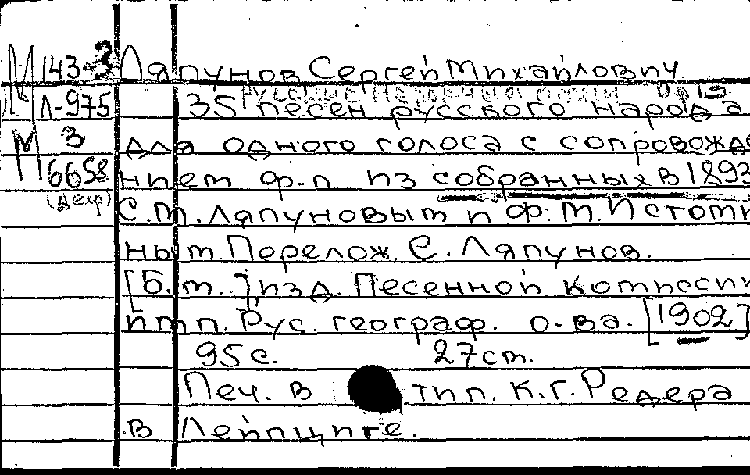 М 143-3 Ляпунов Сергей Михайлович
Л-975 35 песен русского народа
М 3 для одного голоса с сопровожде
6658 нием ф-п из собранных в 1893
(дефр) С.М.Ляпуновым и Ф.М.Истоми
ным. Перелож. С. Ляпунов.
[Б.м.,] изд. Песенной комиссии
имп. Рус. географ. о-ва. [1902]
95 с. 27 см.
Печ. в тип. К.Г.Редера
в Лейпциге.